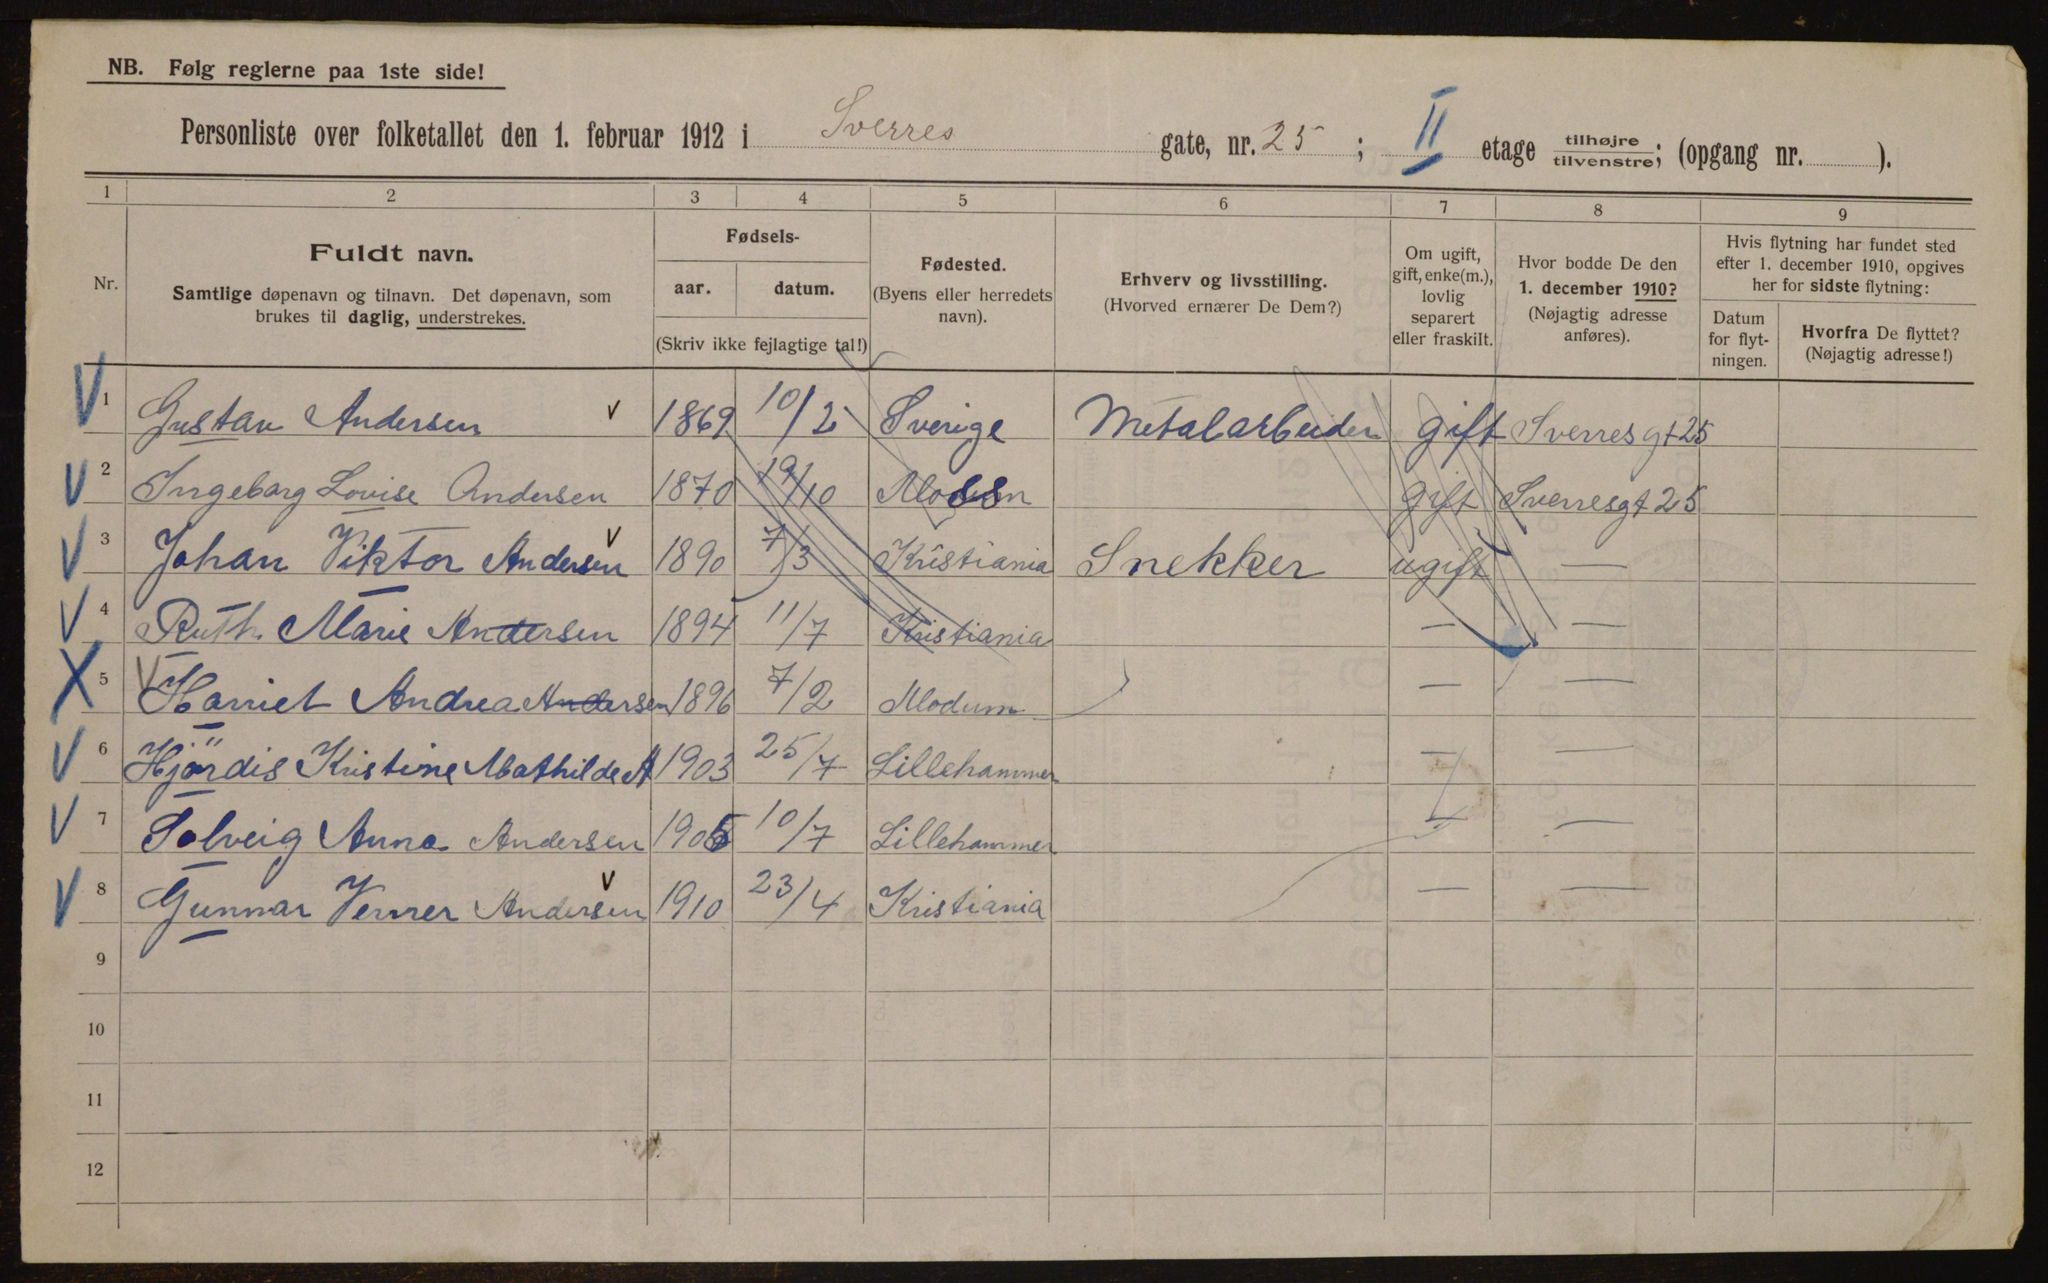 NB. Følg reglerne paa 1ste side!
Personliste over folketallet den 1. februar 1912 i Sverres gate, nr. 25; II etage tilhøjre/tilvenstre; (opgang nr. ).
1 2 3 4 5 6 7 8 9
Nr.
Fuldt navn.
Samtlige døpenavn og tilnavn. Det døpenavn, som
brukes til daglig, understrekes.
Fødsels-
aar. datum.
(Skriv ikke fejlagtige tal!)
Fødested.
(Byens eller herredets
navn).
Erhverv og livsstilling.
(Hvorved ernærer De Dem?)
Om ugift,
gift, enke(m.),
lovlig
separert
eller fraskilt.
Hvor bodde De den
1. december 1910?
(Nøjagtig adresse
anføres).
Hvis flytning har fundet sted
efter 1. december 1910, opgives
her for sidste flytning:
Datum
for flyt-
ningen.
Hvorfra De flyttet?
(Nøjagtig adresse!)
1 Gustav Andersen 1869 10/2 Sverige Metalarbeider gift Sverresgt 25
2 Ingeborg Lovise Andersen 1870 19/10 gift Sverresgt 25
3 Johan Viktor Andersen 1890 7/3 Kristiania Snekker ugift —
4 Ruth Marie Andersen 1894 11/7 Kristiania — —
5 Harriet Andrea Andersen 1896 7/2 Modum — —
6 Hjördis Kristine Mathilde A 1903 25/7 Lillehammer — —
7 Solveig Anna Andersen 1905 10/7 Lillehammer — —
8 Gunnar Verner Andersen 1910 23/4 Kristiania — —
9
10
11
12